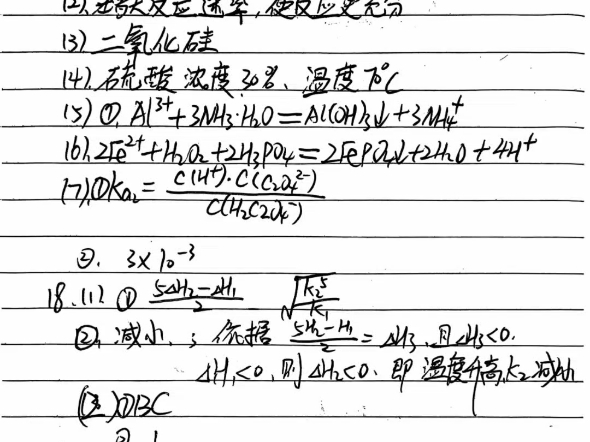 (2). 增大反应速率，使反应更充分
(3) 二氧化硅
(4). 硫酸浓度30%、温度70℃
(5) ①. Al³⁺+3NH₃·H₂O=Al(OH)₃↓+3NH₄⁺
(6). 2Fe²⁺+H₂O₂+2H₃PO₄=2FePO₄↓+2H₂O+4H⁺
(7). ①Ka₂= C(H⁺)·C(C₂O₄²⁻) / C(H₂C₂O₄⁻)
②. 3×10⁻³
18. (1) ① 5ΔH₂-ΔH₁ / 2 √(K₂⁵ / K₁)
②. 减小. ; 依据 5H₂-H₁ / 2 = ΔH₃. 且ΔH₃<0.
ΔH₁<0, 则ΔH₂<0. 即温度升高, K₂减小
(2) ①BC